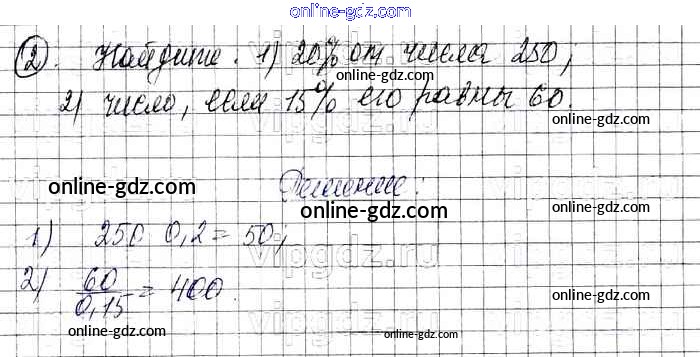 online-gdz.com
2. Найдите: 1) 20% от числа 250;
online-gdz.com
2) число, если 15% его равны 60.
online-gdz.com
online-gdz.com
Решение:
online-gdz.com
vipgdz.ru
1) 250 0,2 = 50;
2) 60/0,15 = 400.
online-gdz.com
online-gdz.com
online-gdz.com